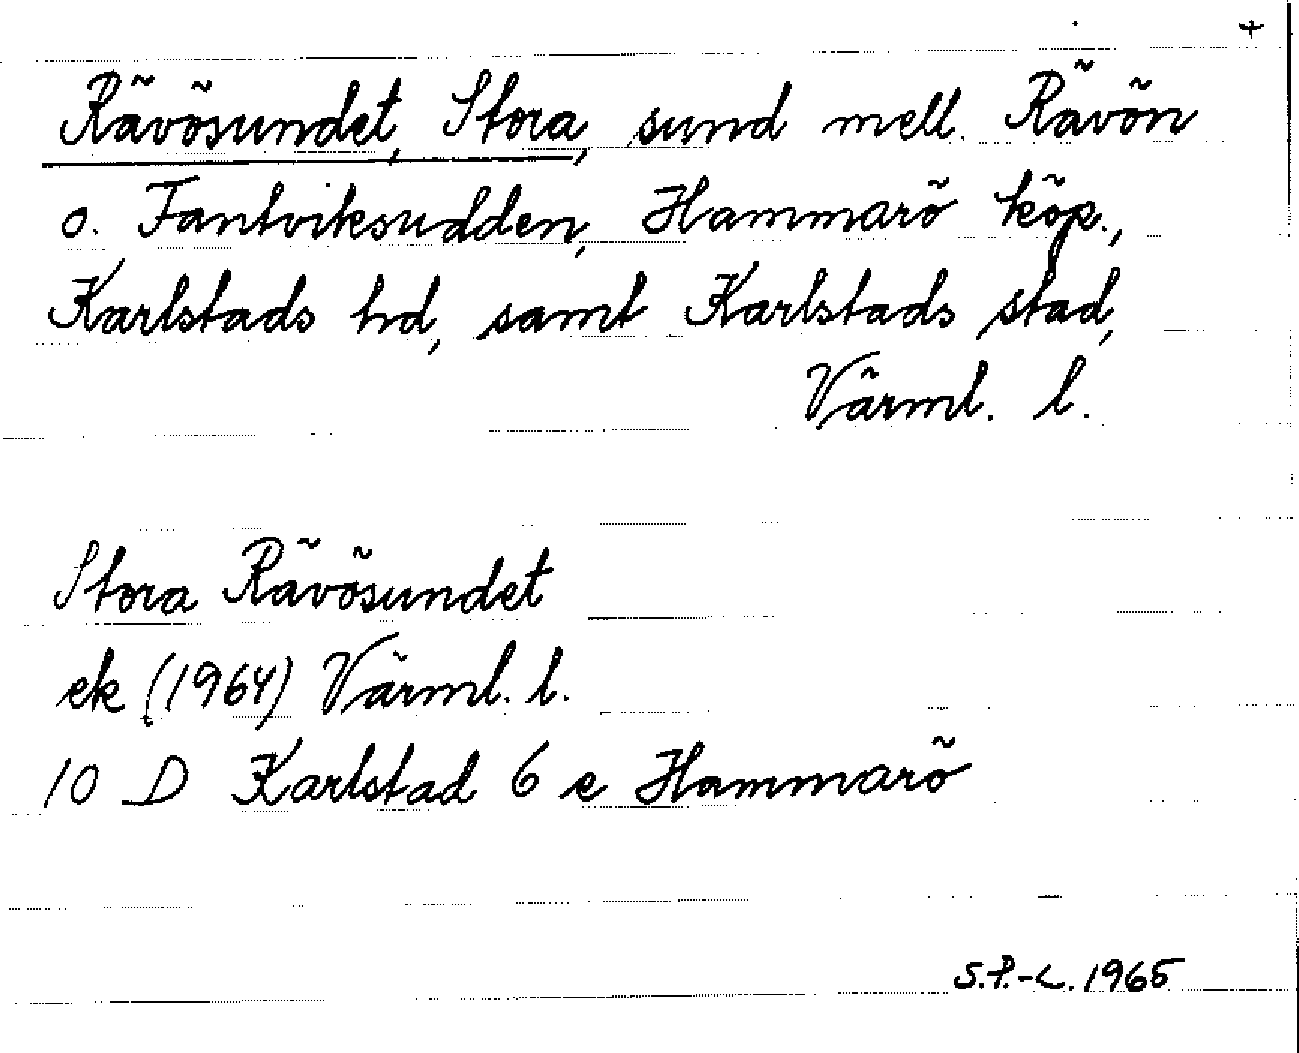 +
Rävösundet, Stora, sund mell. Rävön
o. Fantviksudden, Hammarö köp.,
Karlstads hd, samt Karlstads stad,
Värml. l.
Stora Rävösundet
ek (1964) Värml. l.
10 D Karlstad 6 e Hammarö
S.P.-L. 1965